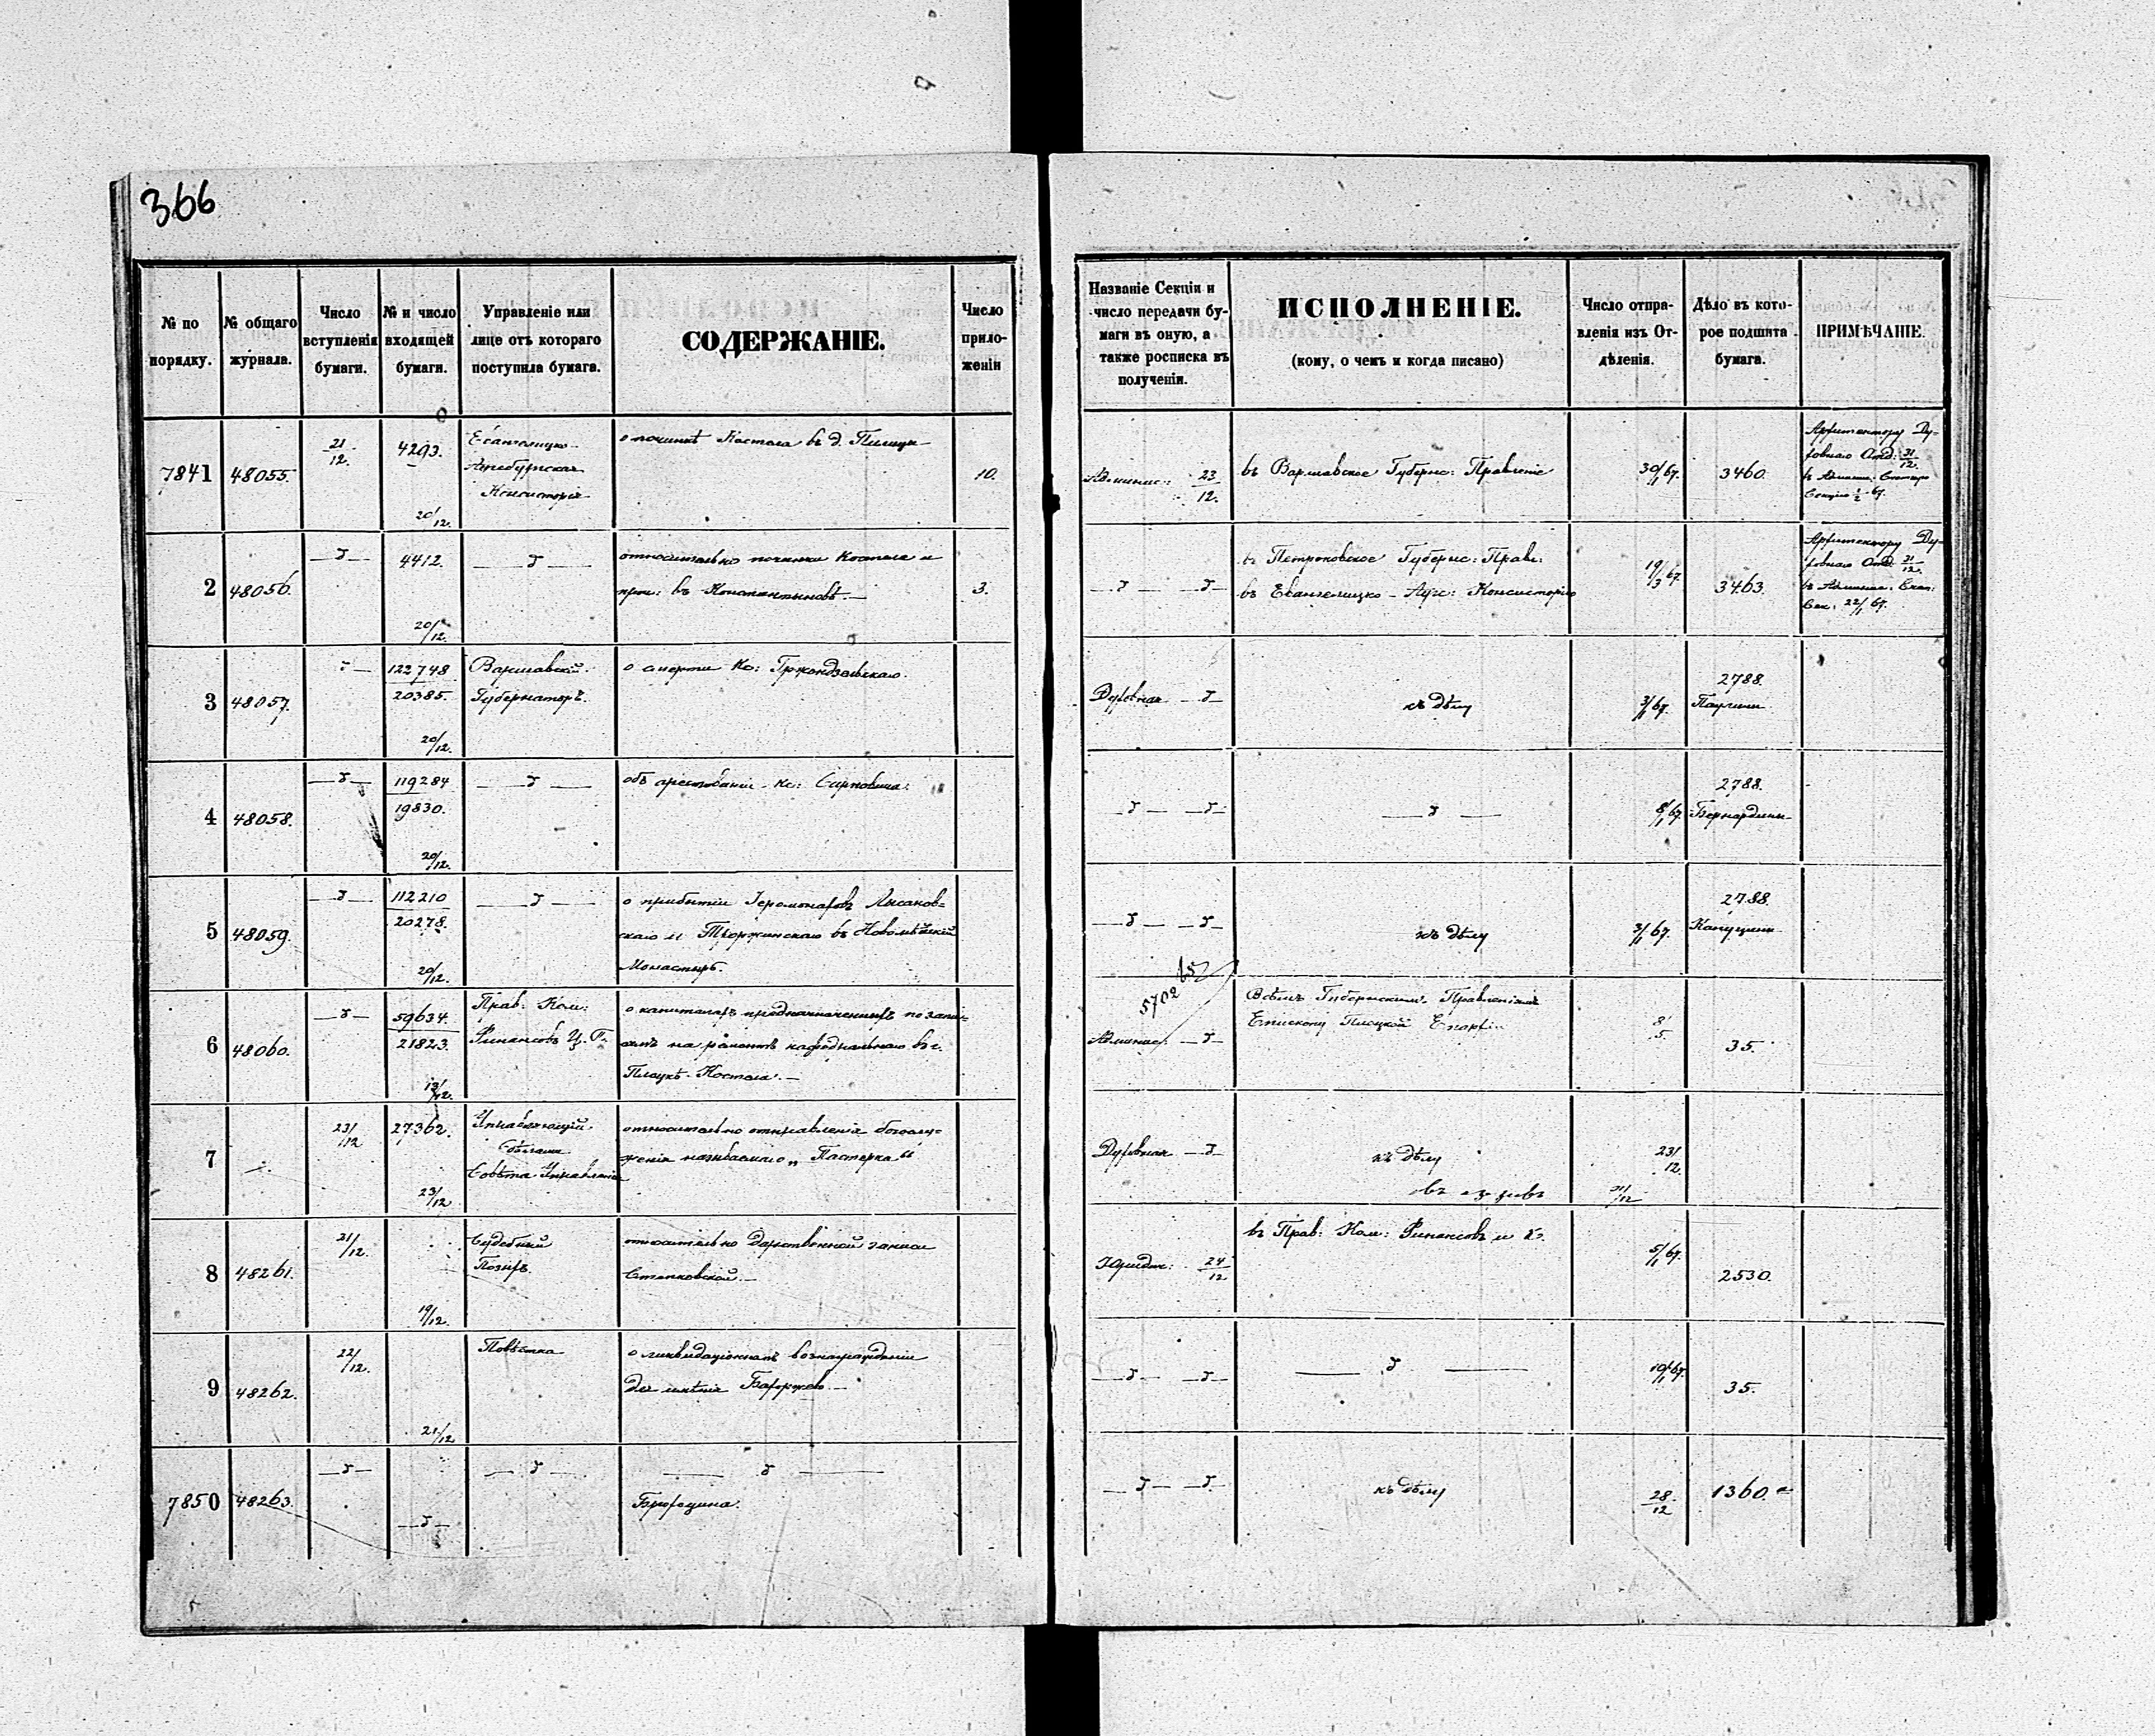 366
№ по порядку.
№ общаго журнала.
Число вступленія бумаги.
№ и число входящей бумаги.
Управленіе или лице отъ котораго поступила бумага.
СОДЕРЖАНІЕ.
Число прило-
женіи
Названіе Секціи и
число передачи бу-
маги въ оную, а
также росписка въ
полученіи.
ИСПОЛНЕНІЕ.
(кому, о чемъ и когда писано)
Число отпра-
вленія изъ От-
дѣленія.
Дѣло въ кото-
рое подшита
бумага.
ПРИМѢЧАНІЕ.
7841 48055. 21/12. 4293. 20/12.
Евангелицко-
Аугсбургская
Консисторія
о починкѣ Костела въ д. Пилица
10.
Админис: 23/12.
въ Варшавское Губернс: Правленіе
30/1 67. 3460.
Архитектору Ду-
ховнаго Отд: 31/12.
2 48056. 4412. 20/12.
относительно починки Костела и
проч: въ Константыновѣ.—
3.
въ Петроковское Губернс: Правл:
въ Евангелицко-Аугс: Консисторію
19/3 67. 3463.
Архитектору Ду-
ховнаго Отд: 31/12.
22/1 67.
3 48057. 122748 20385. 20/12.
Варшавскій
Губернаторъ.
о смерти Кс:
Духовная
къ дѣлу
3/1 67.
2788.
Паулины
4 48058. 119284 19830. 20/12.
объ арестованіи Кс:
8/1 67.
2788.
Бернардины
5 48059. 112210 20278. 20/12.
о прибытіи Іеромонаховъ Лысаков-
скаго и въ Новомѣйскій
Монастырь.
къ дѣлу
3/1 67.
2788.
Капуцины
6 48060. 59634. 21823. 13/12.
Прав: Ком:
Финансовъ Ц. П.
о капиталахъ предназначенныхъ по запи-
самъ на ремонтъ кафедральнаго въ г.
Плоцкѣ Костела.—
5702
Админис:
Всѣмъ Губернскимъ Правленіямъ
Епископу Плоцкой Епархіи
8/5.
35.
7 23/12 27362. 23/12
Управляющій
дѣлами
Совѣта Управленія
относительно отправленія богослу-
женія называемаго „Пастерка“
Духовная
къ дѣлу
23/12.
31/12
8 48261. 21/12. 19/12.
Судебный
Позывъ.
относительно дарственной записи
Юридич: 24/12
въ Прав: Ком: Финансовъ и
5/1 67.
2530.
9 48262. 22/12. 21/12
Повѣстка
о ликвидаціонномъ вознагражденіи
для имѣнія
10/1 67.
35.
7850 48263.
къ дѣлу
28/12
1360.